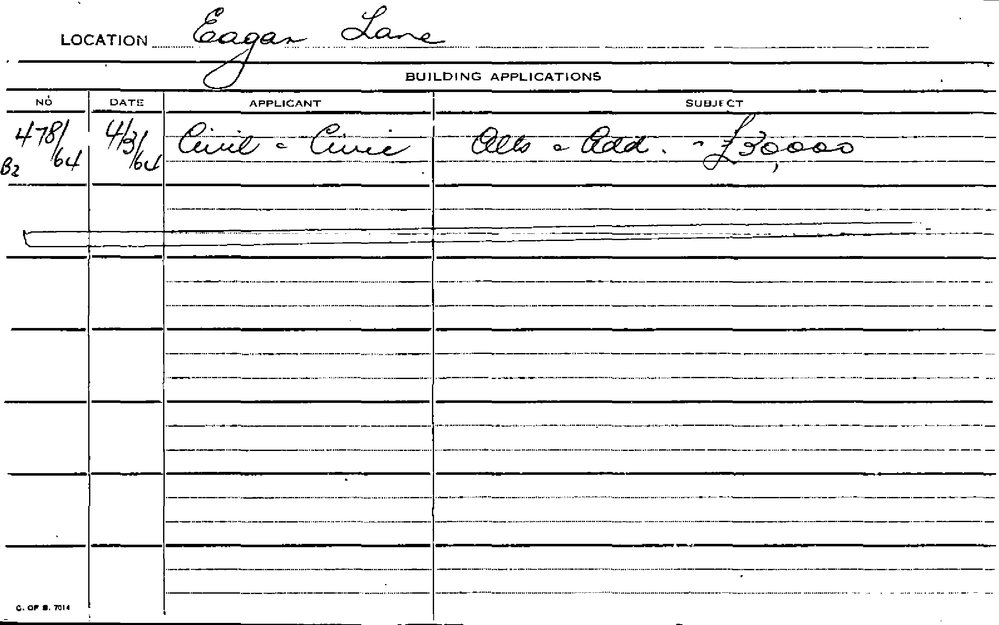 LOCATION Eagar Lane
BUILDING APPLICATIONS
NO DATE APPLICANT SUBJECT
478/ 4/3/64 Civil & Civic Alts & Add. - £30,000
B2 /64
C. OF S. 7014